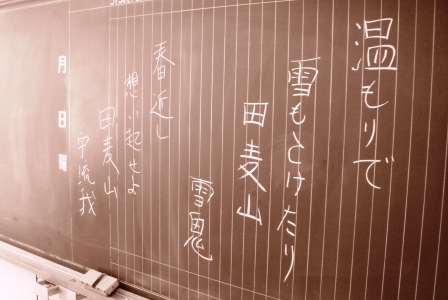 温もりで
雪もとけたり
田麦山
雪鬼
春近し
想い起せよ
田麦山
中流我
月 日